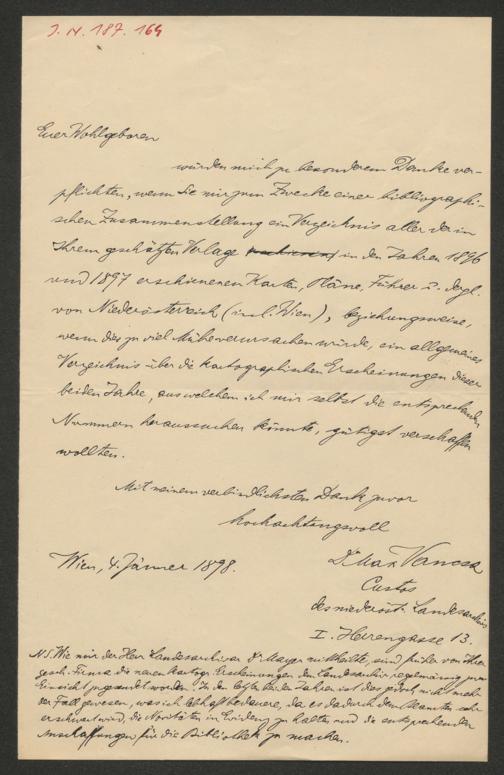 J. N. 187.164
Euer Wohlgeboren
würden mich zu besonderem Danke ver-
pflichten, wenn Sie mir zum Zwecke einer bibliographi-
schen Zusammenstellung ein Verzeichnis aller der in
Ihrem geschätzten Verlage in den Jahren 1896
und 1897 erschienenen Karten, Pläne, Führer u. dergl.
von Niederösterreich (incl. Wien), beziehungsweise,
wenn dies zu viel Mühe verursachen würde, ein allgemeines
Verzeichnis über die kartographischen Erscheinungen dieser
beiden Jahre, aus welchem ich mir selbst die entsprechenden
Nummern heraussuchen könnte, gütigst verschaffen
wollten.
Mit meinem verbindlichsten Dank zuvor
hochachtungsvoll
Wien, 4. Jänner 1898.
Dr Max Vancsa
Custos
des niederöst. Landesarchivs
I. Herrengasse 13.
N.S. Wie mir der Herr Landesarchivar Dr Mayer mittheilte, sind früher von Ihrer
gesch. Firma die neuen kartogr. Erscheinungen dem Landesarchiv regelmässig zur
Einsicht zugesandt worden. In den letzten beiden Jahren ist das jedoch nicht mehr
der Fall gewesen, was ich lebhaft bedauere, da es dadurch dem Beamten sehr
erschwert wird, die Novitäten in Evidenz zu halten und die entsprechenden
Anschaffungen für die Bibliothek zu machen.